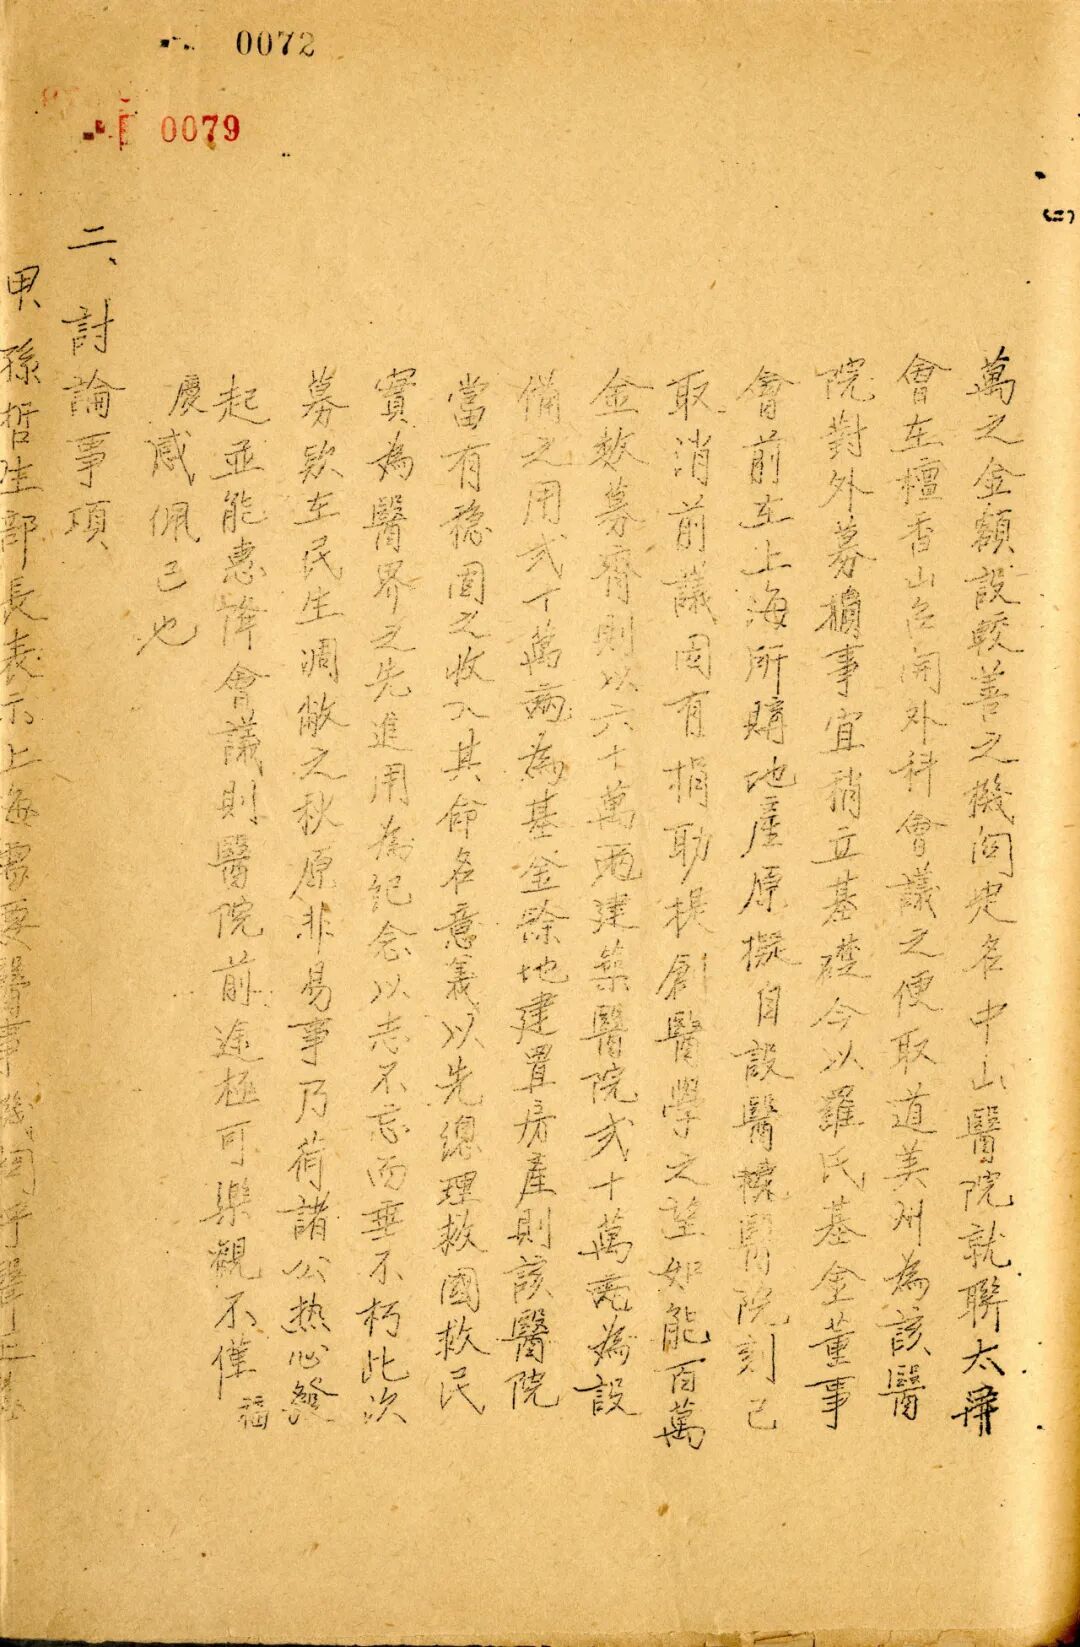 0072
0079
(二)
萬之金額設較善之機関定名中山醫院就聯太平
會在檀香山召開外科會議之便取道美州為該醫
院對外募捐事宜稍立基礎今以羅氏基金董事
會前在上海所購地產原擬自設醫校醫院刻已
取消前議固有捐助提創醫學之望如能百萬
金款募齊則以六十萬兩建築醫院弍十萬兩為設
備之用弍十萬兩為基金除地建置房產則該醫院
當有穩固之收入其命名意義以先總理救國救民
實為醫界之先進用為紀念以志不忘而垂不朽此次
募欵在民生凋敝之秋原非易事乃荷諸公热心發
起並能惠降會議則醫院前途極可樂觀不僅福
慶感佩已也
二、討論事項
甲、孫哲生部長表示上海需要醫事機関